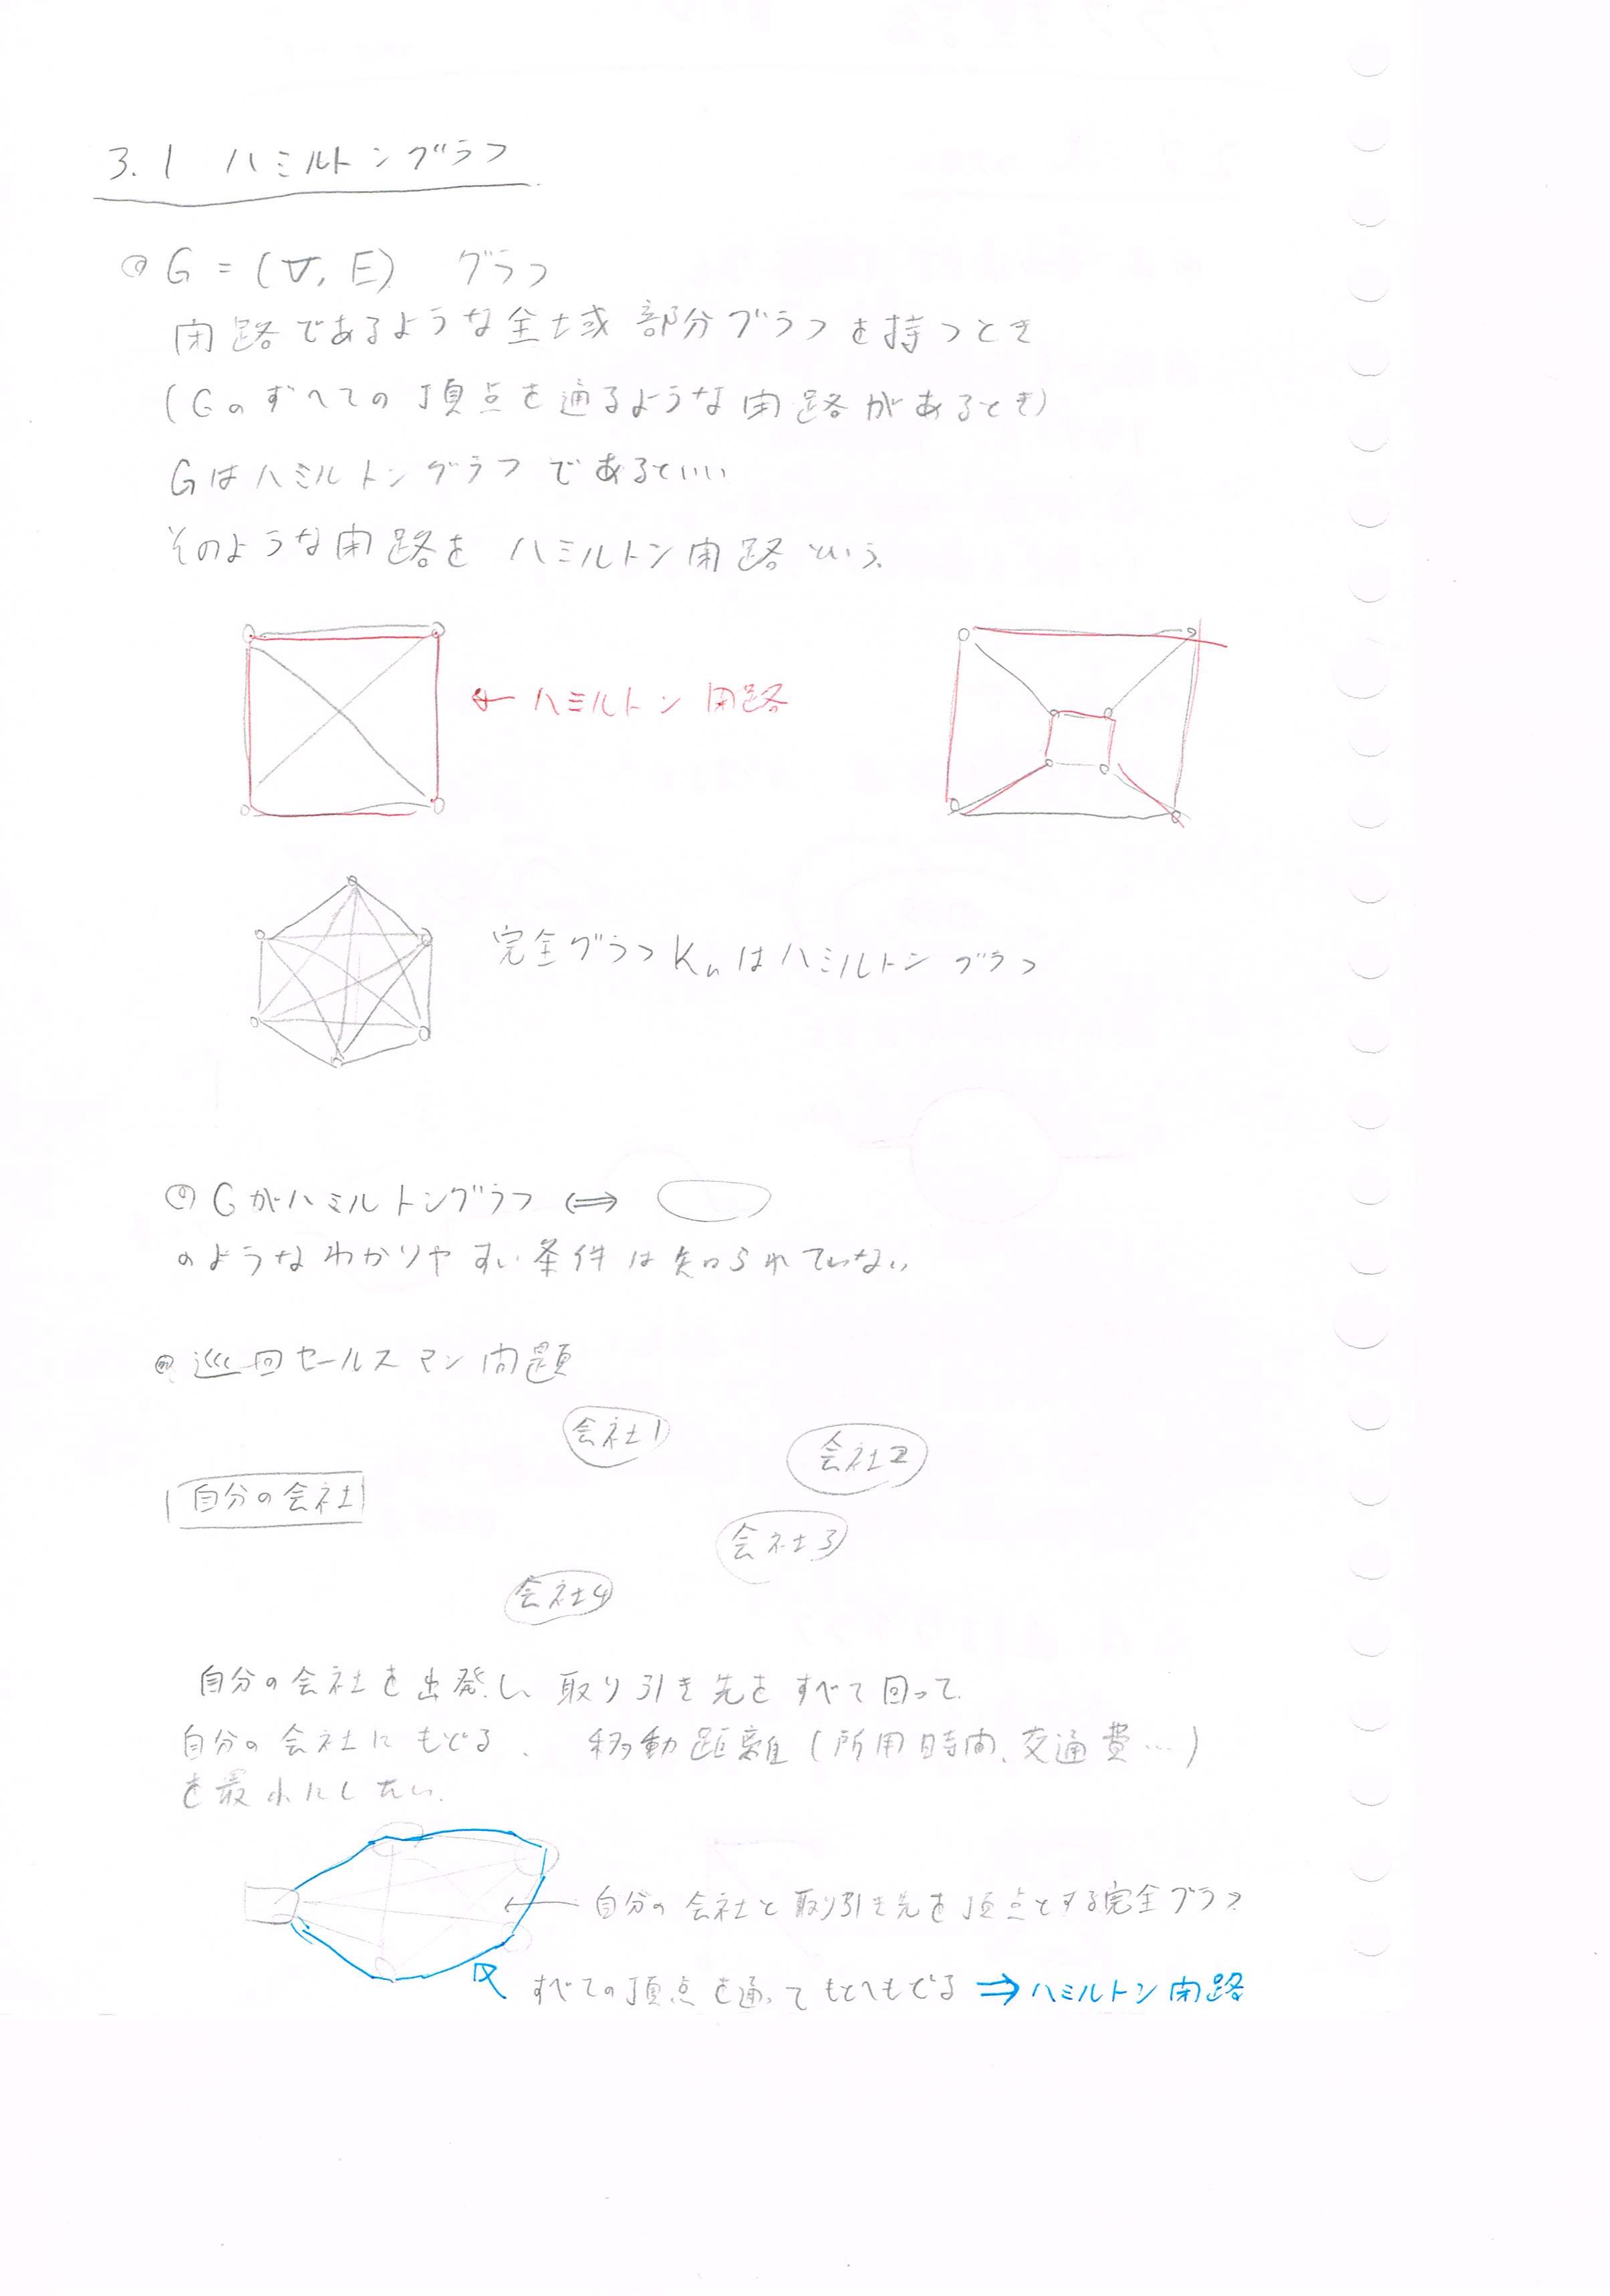 3.1 ハミルトングラフ
G = (V, E) グラフ
閉路であるような全域部分グラフを持つとき
(Gのすべての頂点を通るような閉路があるとき)
Gはハミルトングラフであるといい
そのような閉路をハミルトン閉路という。
← ハミルトン閉路
完全グラフ Kn はハミルトングラフ
Gがハミルトングラフ ⇔
のようなわかりやすい条件は知られていない
巡回セールスマン問題
会社1
会社2
自分の会社
会社3
会社4
自分の会社を出発し、取り引き先をすべて回って
自分の会社にもどる、 移動距離(所用時間、交通費…)
を最小にしたい。
← 自分の会社と取り引き先を頂点とする完全グラフ
すべての頂点を通ってもとへもどる ⇒ ハミルトン閉路